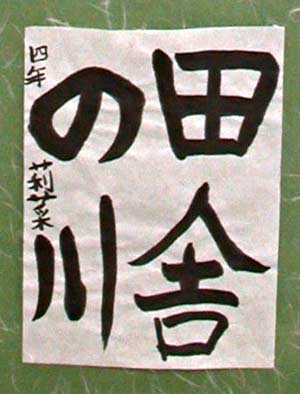 田舎
の川
四年 莉菜